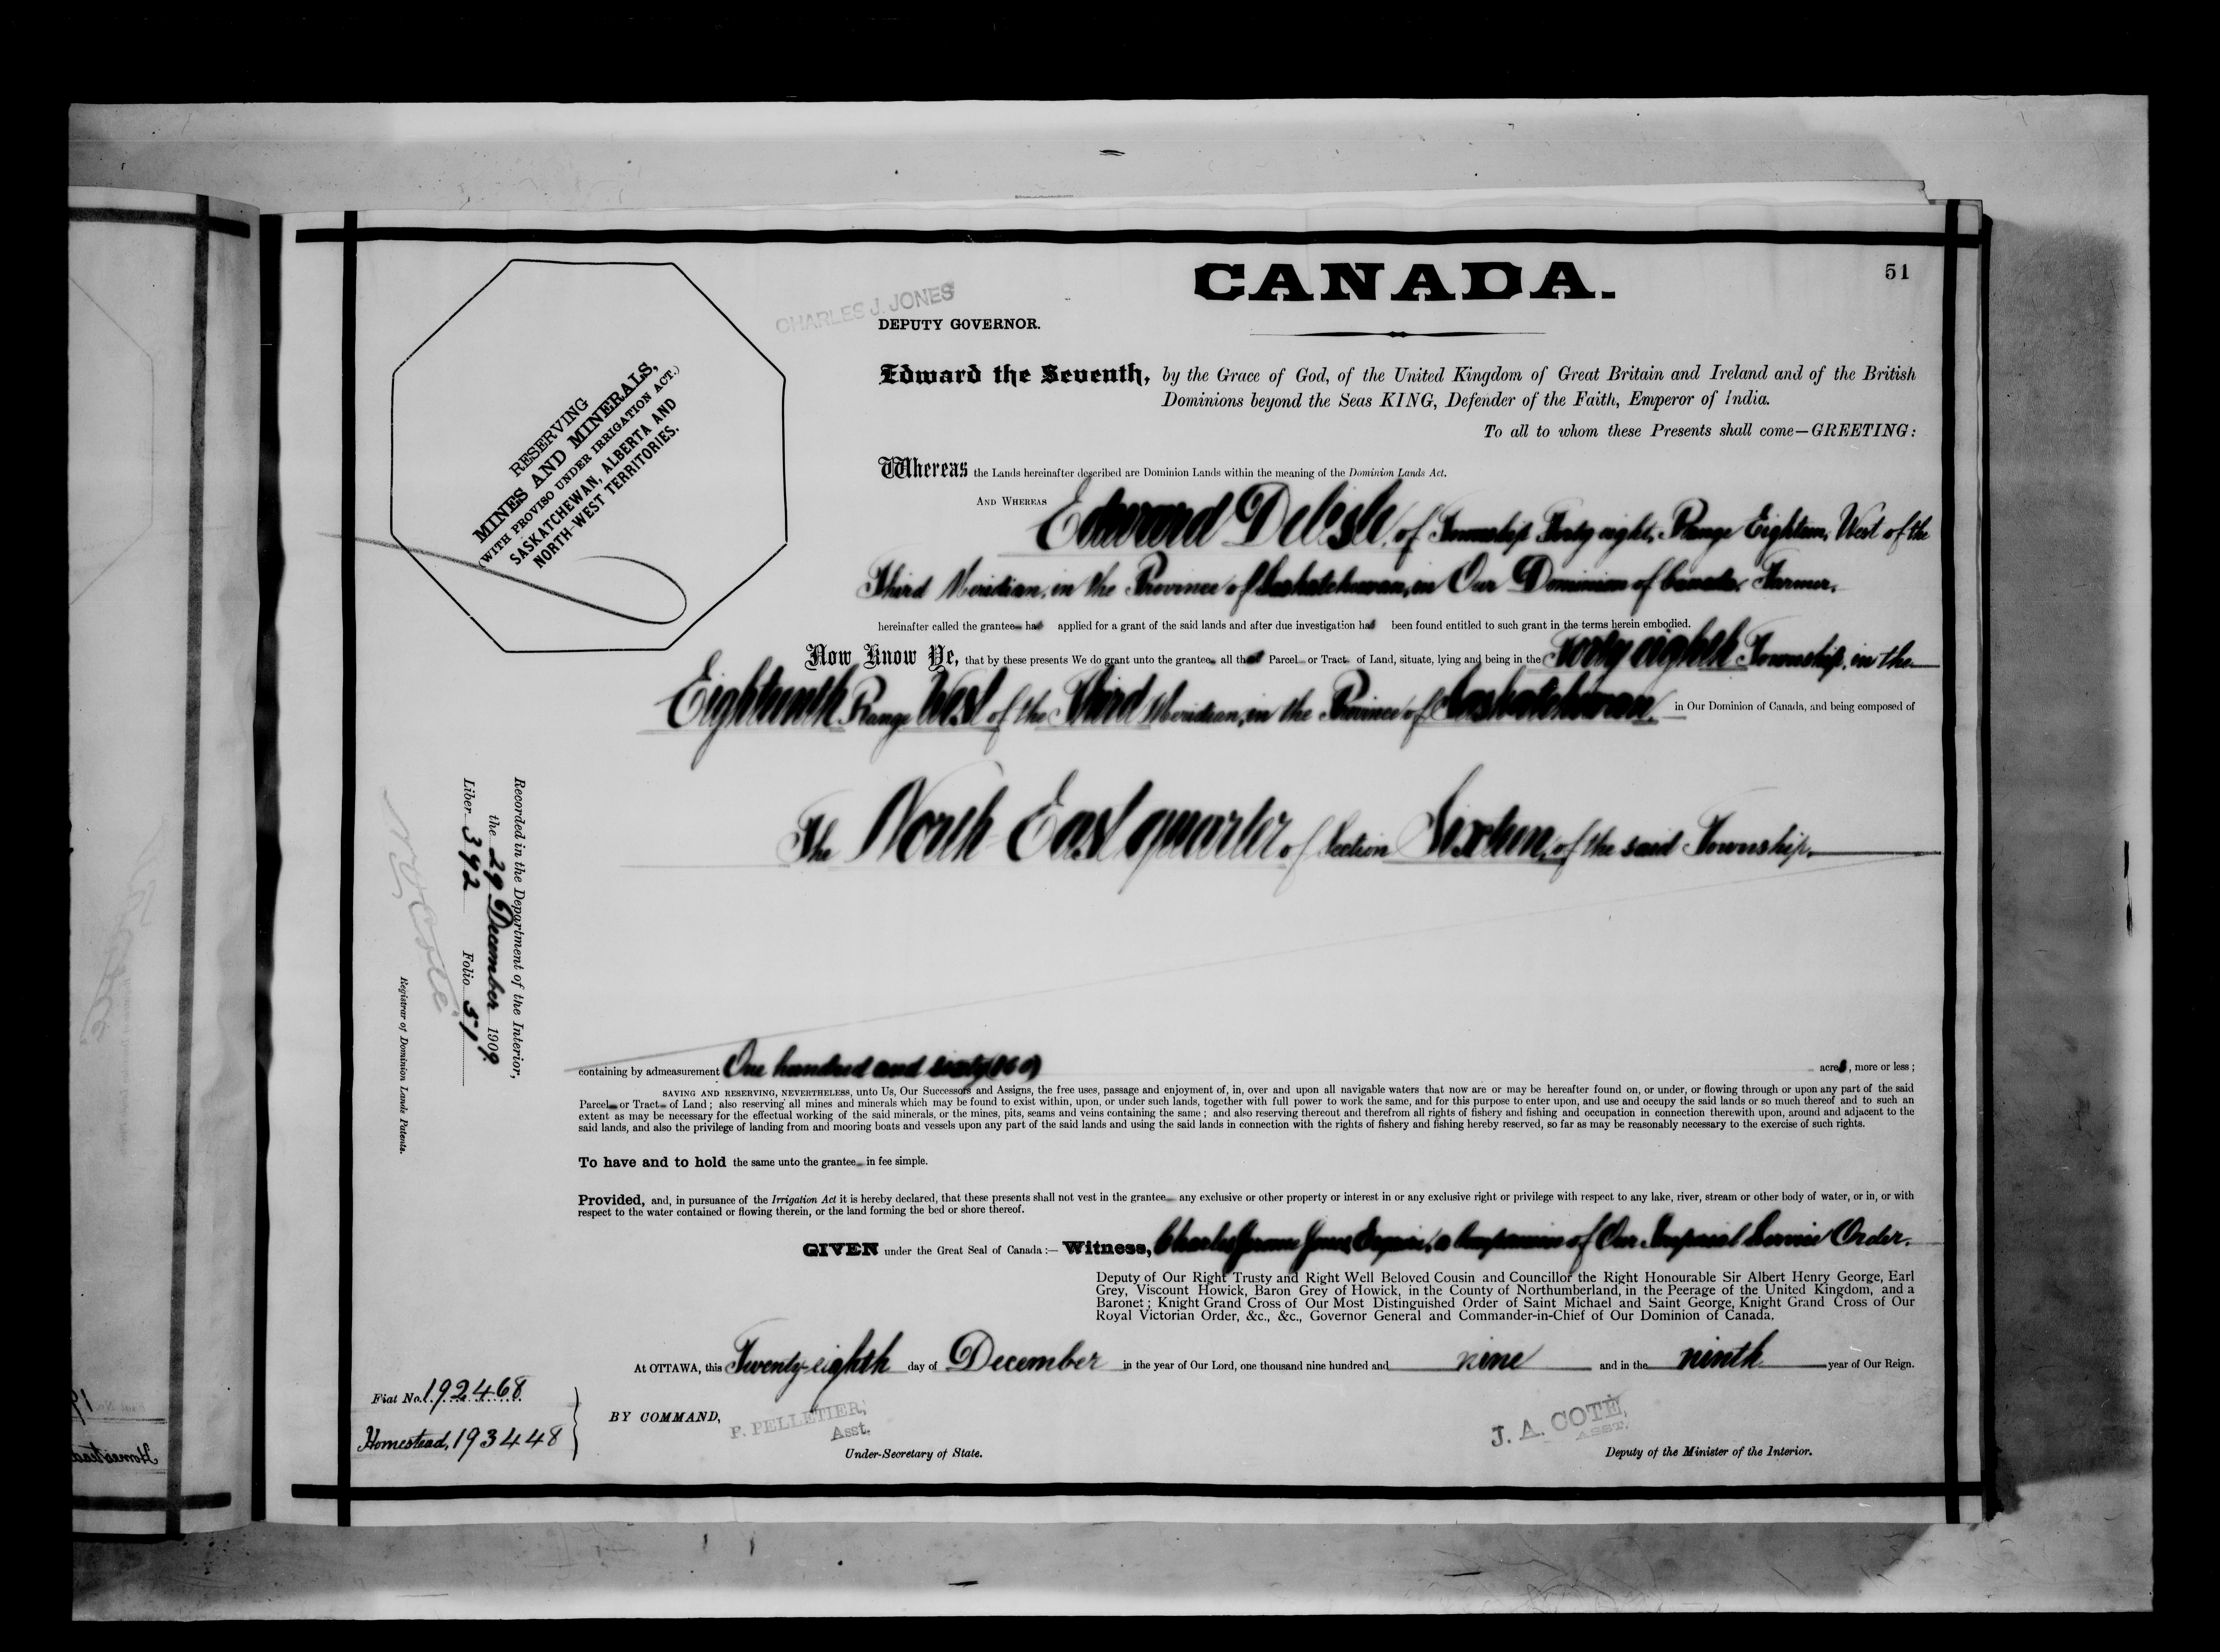 CANADA.
51
CHARLES J. JONES
DEPUTY GOVERNOR.
Edward the Seventh, by the Grace of God, of the United Kingdom of Great Britain and Ireland and of the British
Dominions beyond the Seas KING, Defender of the Faith, Emperor of India.
To all to whom these Presents shall come—GREETING:
RESERVING
MINES AND MINERALS,
(WITH PROVISO UNDER IRRIGATION ACT.)
SASKATCHEWAN, ALBERTA AND
NORTH-WEST TERRITORIES.
Whereas the Lands hereinafter described are Dominion Lands within the meaning of the Dominion Lands Act.
AND WHEREAS Edward Delisle, of Township Forty eight, Range Eighteen, West of the
Third Meridian, in the Province of Saskatchewan, in Our Dominion of Canada, Farmer,
hereinafter called the grantee has applied for a grant of the said lands and after due investigation has been found entitled to such grant in the terms herein embodied.
Now Know Ye, that by these presents We do grant unto the grantee all that Parcel or Tract of Land, situate, lying and being in the Forty eighth Township, in the
Eighteenth Range West of the Third Meridian, in the Province of Saskatchewan, in Our Dominion of Canada, and being composed of
The North East quarter of Section Sixteen, of the said Township.
Recorded in the Department of the Interior,
the 29 December 1909.
Liber 392 Folio 51
N O Coté
Registrar of Dominion Lands Patents.
containing by admeasurement One hundred and sixty (160) acres, more or less;
SAVING AND RESERVING, NEVERTHELESS, unto Us, Our Successors and Assigns, the free uses, passage and enjoyment of, in, over and upon all navigable waters that now are or may be hereafter found on, or under, or flowing through or upon any part of the said
Parcel or Tract of Land; also reserving all mines and minerals which may be found to exist within, upon, or under such lands, together with full power to work the same, and for this purpose to enter upon, and use and occupy the said lands or so much thereof and to such an
extent as may be necessary for the effectual working of the said minerals, or the mines, pits, seams and veins containing the same; and also reserving thereout and therefrom all rights of fishery and fishing and occupation in connection therewith upon, around and adjacent to the
said lands, and also the privilege of landing from and mooring boats and vessels upon any part of the said lands and using the said lands in connection with the rights of fishery and fishing hereby reserved, so far as may be reasonably necessary to the exercise of such rights.
To have and to hold the same unto the grantee in fee simple.
Provided, and, in pursuance of the Irrigation Act it is hereby declared, that these presents shall not vest in the grantee any exclusive or other property or interest in or any exclusive right or privilege with respect to any lake, river, stream or other body of water, or in, or with
respect to the water contained or flowing therein, or the land forming the bed or shore thereof.
GIVEN under the Great Seal of Canada:— Witness, Charles Jerome Jones, Esquire, a Companion of Our Imperial Service Order.
Deputy of Our Right Trusty and Right Well Beloved Cousin and Councillor the Right Honourable Sir Albert Henry George, Earl
Grey, Viscount Howick, Baron Grey of Howick, in the County of Northumberland, in the Peerage of the United Kingdom, and a
Baronet; Knight Grand Cross of Our Most Distinguished Order of Saint Michael and Saint George, Knight Grand Cross of Our
Royal Victorian Order, &c., &c., Governor General and Commander-in-Chief of Our Dominion of Canada.
At OTTAWA, this Twenty-eighth day of December in the year of Our Lord, one thousand nine hundred and nine and in the ninth year of Our Reign.
Fiat No. 192468
Homestead, 193448
BY COMMAND,
F. PELLETIER,
Asst.
Under-Secretary of State.
J. A. COTÉ,
ASST.
Deputy of the Minister of the Interior.